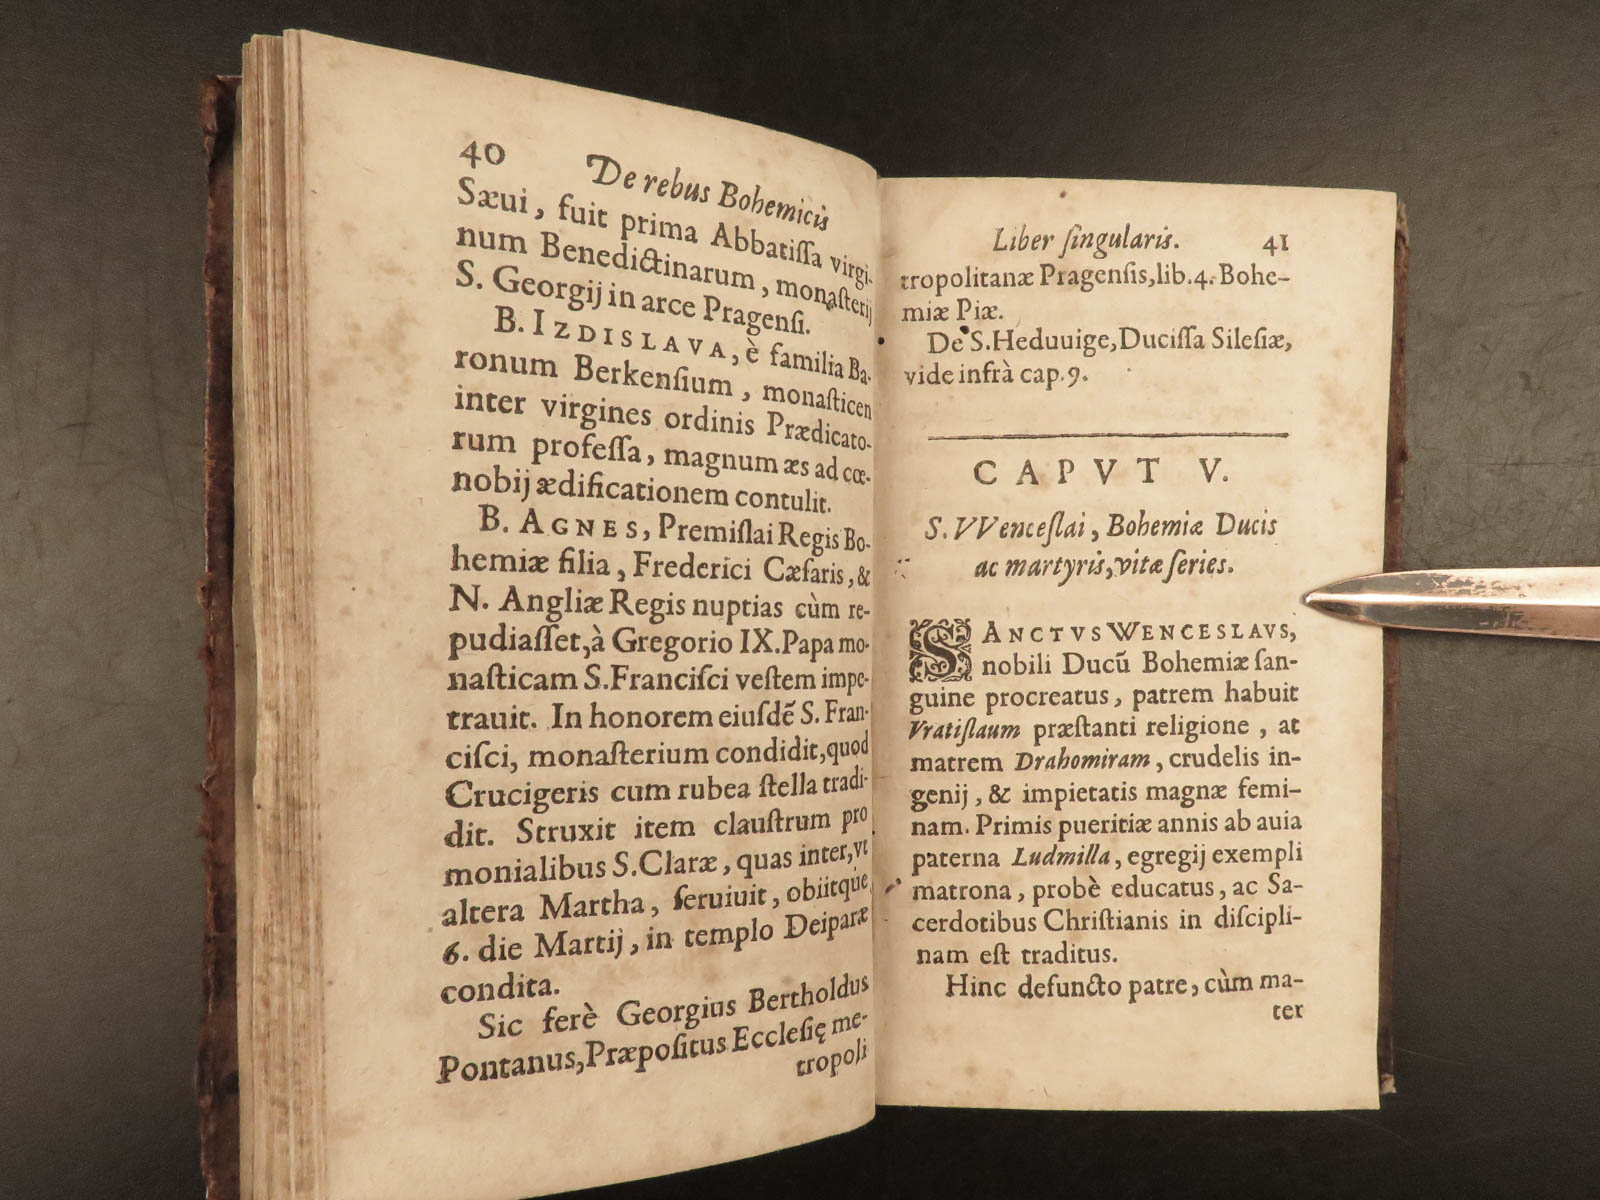 40 De rebus Bohemicis
Sæui, fuit prima Abbatiſſa virgi-
num Benedictinarum, monaſterij
S. Georgij in arce Pragenſi.
B. IZDISLAVA, è familia Ba-
ronum Berkenſium, monaſticen
inter virgines ordinis Prædicato-
rum profeſſa, magnum æs ad cœ-
nobij ædificationem contulit.
B. AGNES, Premiſlai Regis Bo-
hemiæ filia, Frederici Cæſaris, &
N. Angliæ Regis nuptias cùm re-
pudiaſſet, à Gregorio IX. Papa mo-
naſticam S. Franciſci veſtem impe-
trauit. In honorem eiuſdẽ S. Fran-
ciſci, monaſterium condidit, quod
Crucigeris cum rubea ſtella tradi-
dit. Struxit item clauſtrum pro
monialibus S. Claræ, quas inter, vt
altera Martha, ſeruiuit, obiitque
6. die Martij, in templo Deiparæ
condita.
Sic ferè Georgius Bertholdus
Pontanus, Præpoſitus Eccleſię me-
tropoli
Liber ſingularis. 41
tropolitanæ Pragenſis, lib. 4. Bohe-
miæ Piæ.
De S. Heduuige, Duciſſa Sileſiæ,
vide infrà cap. 9.
CAPVT V.
S. VVenceſlai, Bohemiæ Ducis
ac martyris, vitæ ſeries.
SANCTVS WENCESLAVS,
nobili Ducũ Bohemiæ ſan-
guine procreatus, patrem habuit
Vratiſlaum præſtanti religione, at
matrem Drahomiram, crudelis in-
genij, & impietatis magnæ femi-
nam. Primis pueritiæ annis ab auia
paterna Ludmilla, egregij exempli
matrona, probè educatus, ac Sa-
cerdotibus Chriſtianis in diſcipli-
nam eſt traditus.
Hinc defuncto patre, cùm ma-
ter